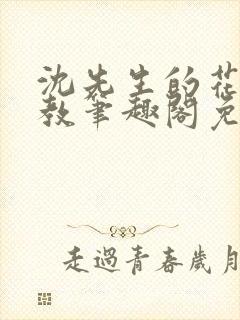 沈先生的花
教笔趣阁免
走過青春歲月